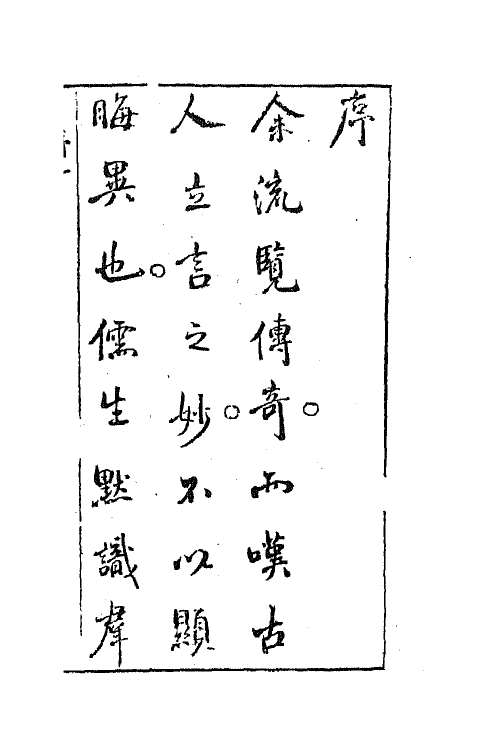 序
余流覽傳奇。而嘆古
人立言之妙。不以顯
晦異也。儒生默識羣